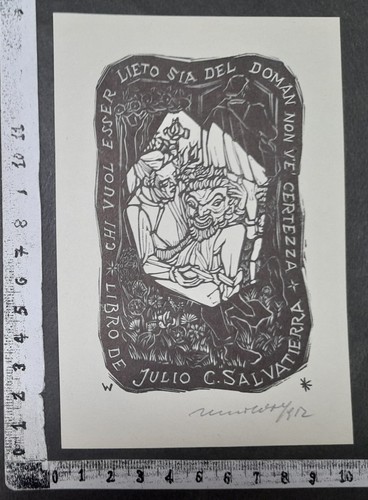 CHI VUOL ESSER LIETO SIA DEL DOMAN NON V'È CERTEZZA *
LIBRO DE JULIO C. SALVATIERRA *
W *
11
10
9
8
7
6
5
4
3
2
1
0
0 1 2 3 4 5 6 7 8 9 10